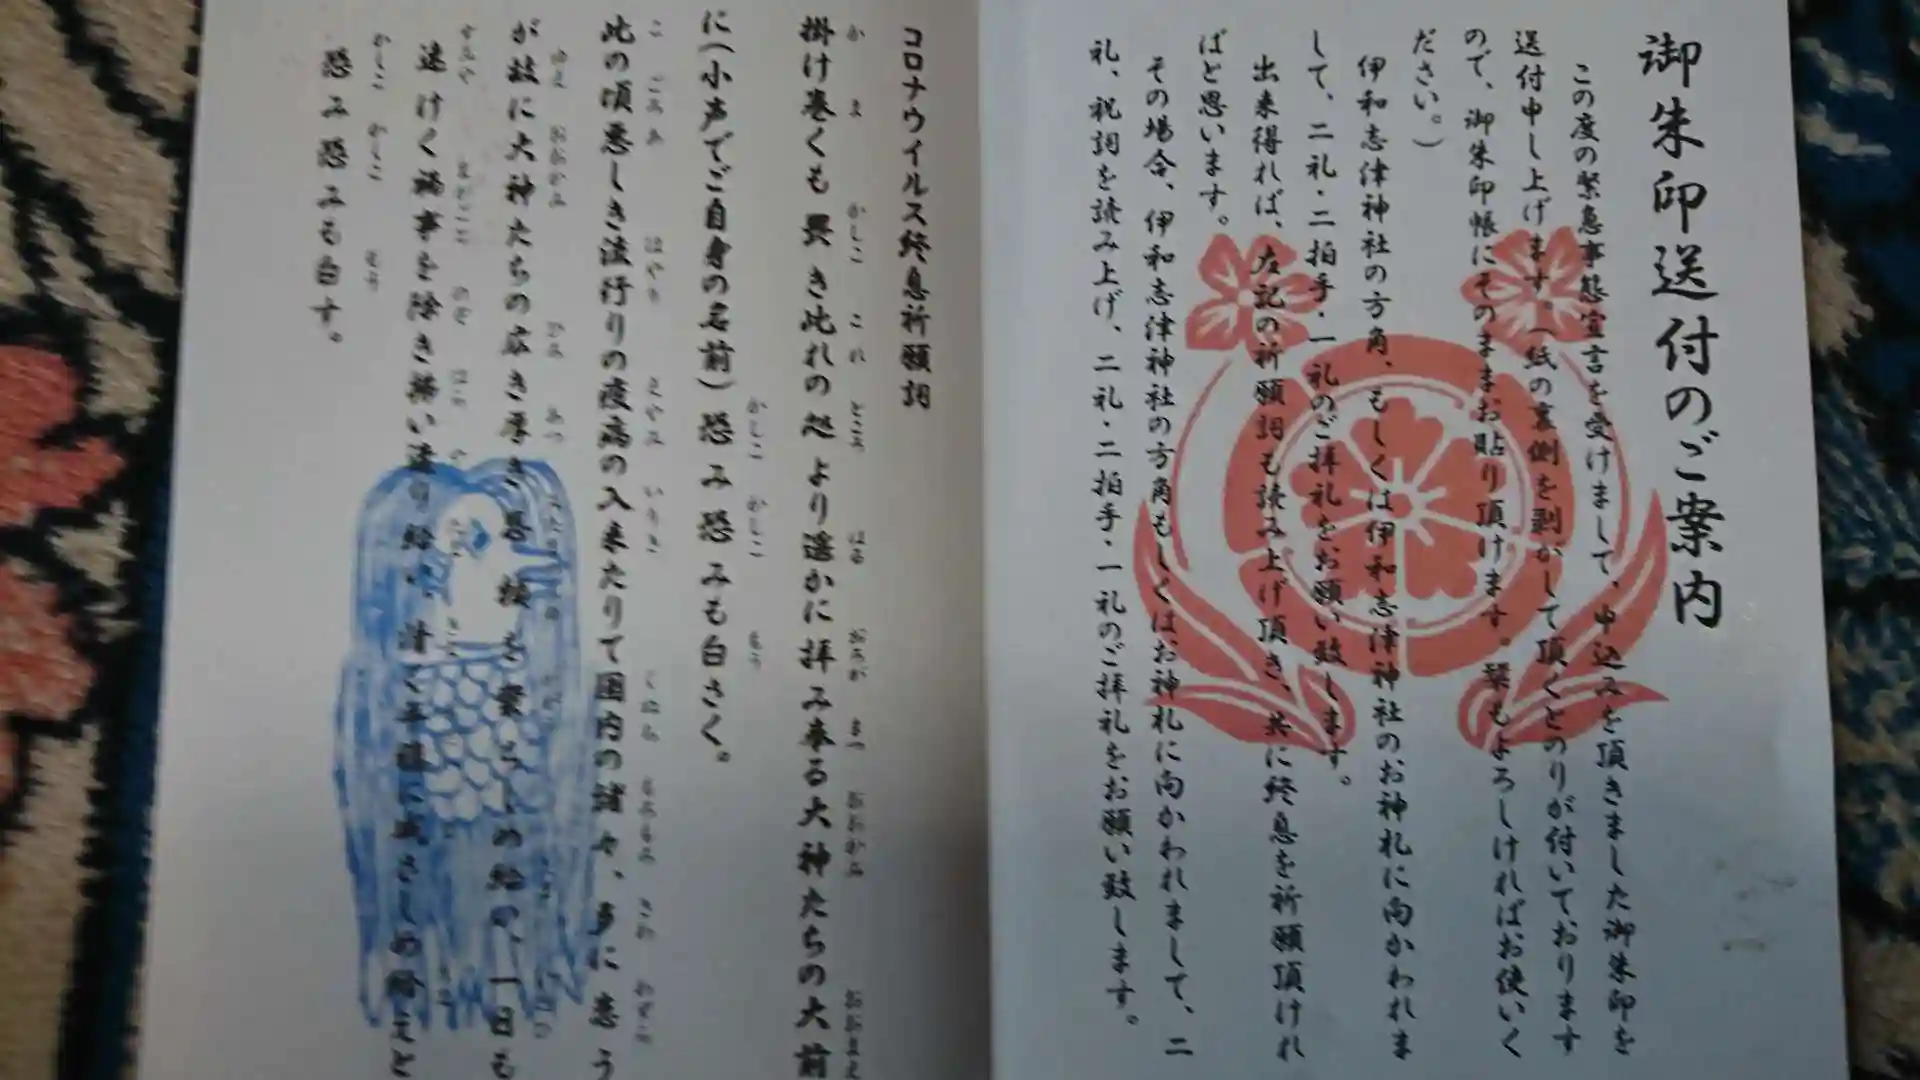 御朱印送付のご案内
この度の緊急事態宣言を受けまして、申込みを頂きました御朱印を
送付申し上げます。（紙の裏側を剥がして頂くとのりが付いております
ので、御朱印帳にそのままお貼り頂けます。宜もよろしければお使いく
ださい。）
伊和志津神社の方角、もしくは伊和志津神社のお神札に向かわれま
して、二礼・二拍手・一礼のご拝礼をお願い致します。
出来得れば、左記の祈願詞も読み上げ頂き、共に終息を祈願頂けれ
ばと思います。
その場合、伊和志津神社の方角もしくはお神札に向かわれまして、二
礼、祝詞を読み上げ、二礼・二拍手・一礼のご拝礼をお願い致します。
コロナウイルス終息祈願詞
掛け巻くも畏き此れの処より遥かに拝み奉る大神たちの大前
に（小声でご自身の名前）恐み恐みも白さく。
此の頃悪しき流行りの疫病の入来たりて国内の諸々、多に患う
が故に大神たちの広き厚き恩頼を蒙らしめ給め、一日も
速けく禍事を除き掃い遣り給い、清く平穏に成さしめ給えと
恐み恐みも白す。